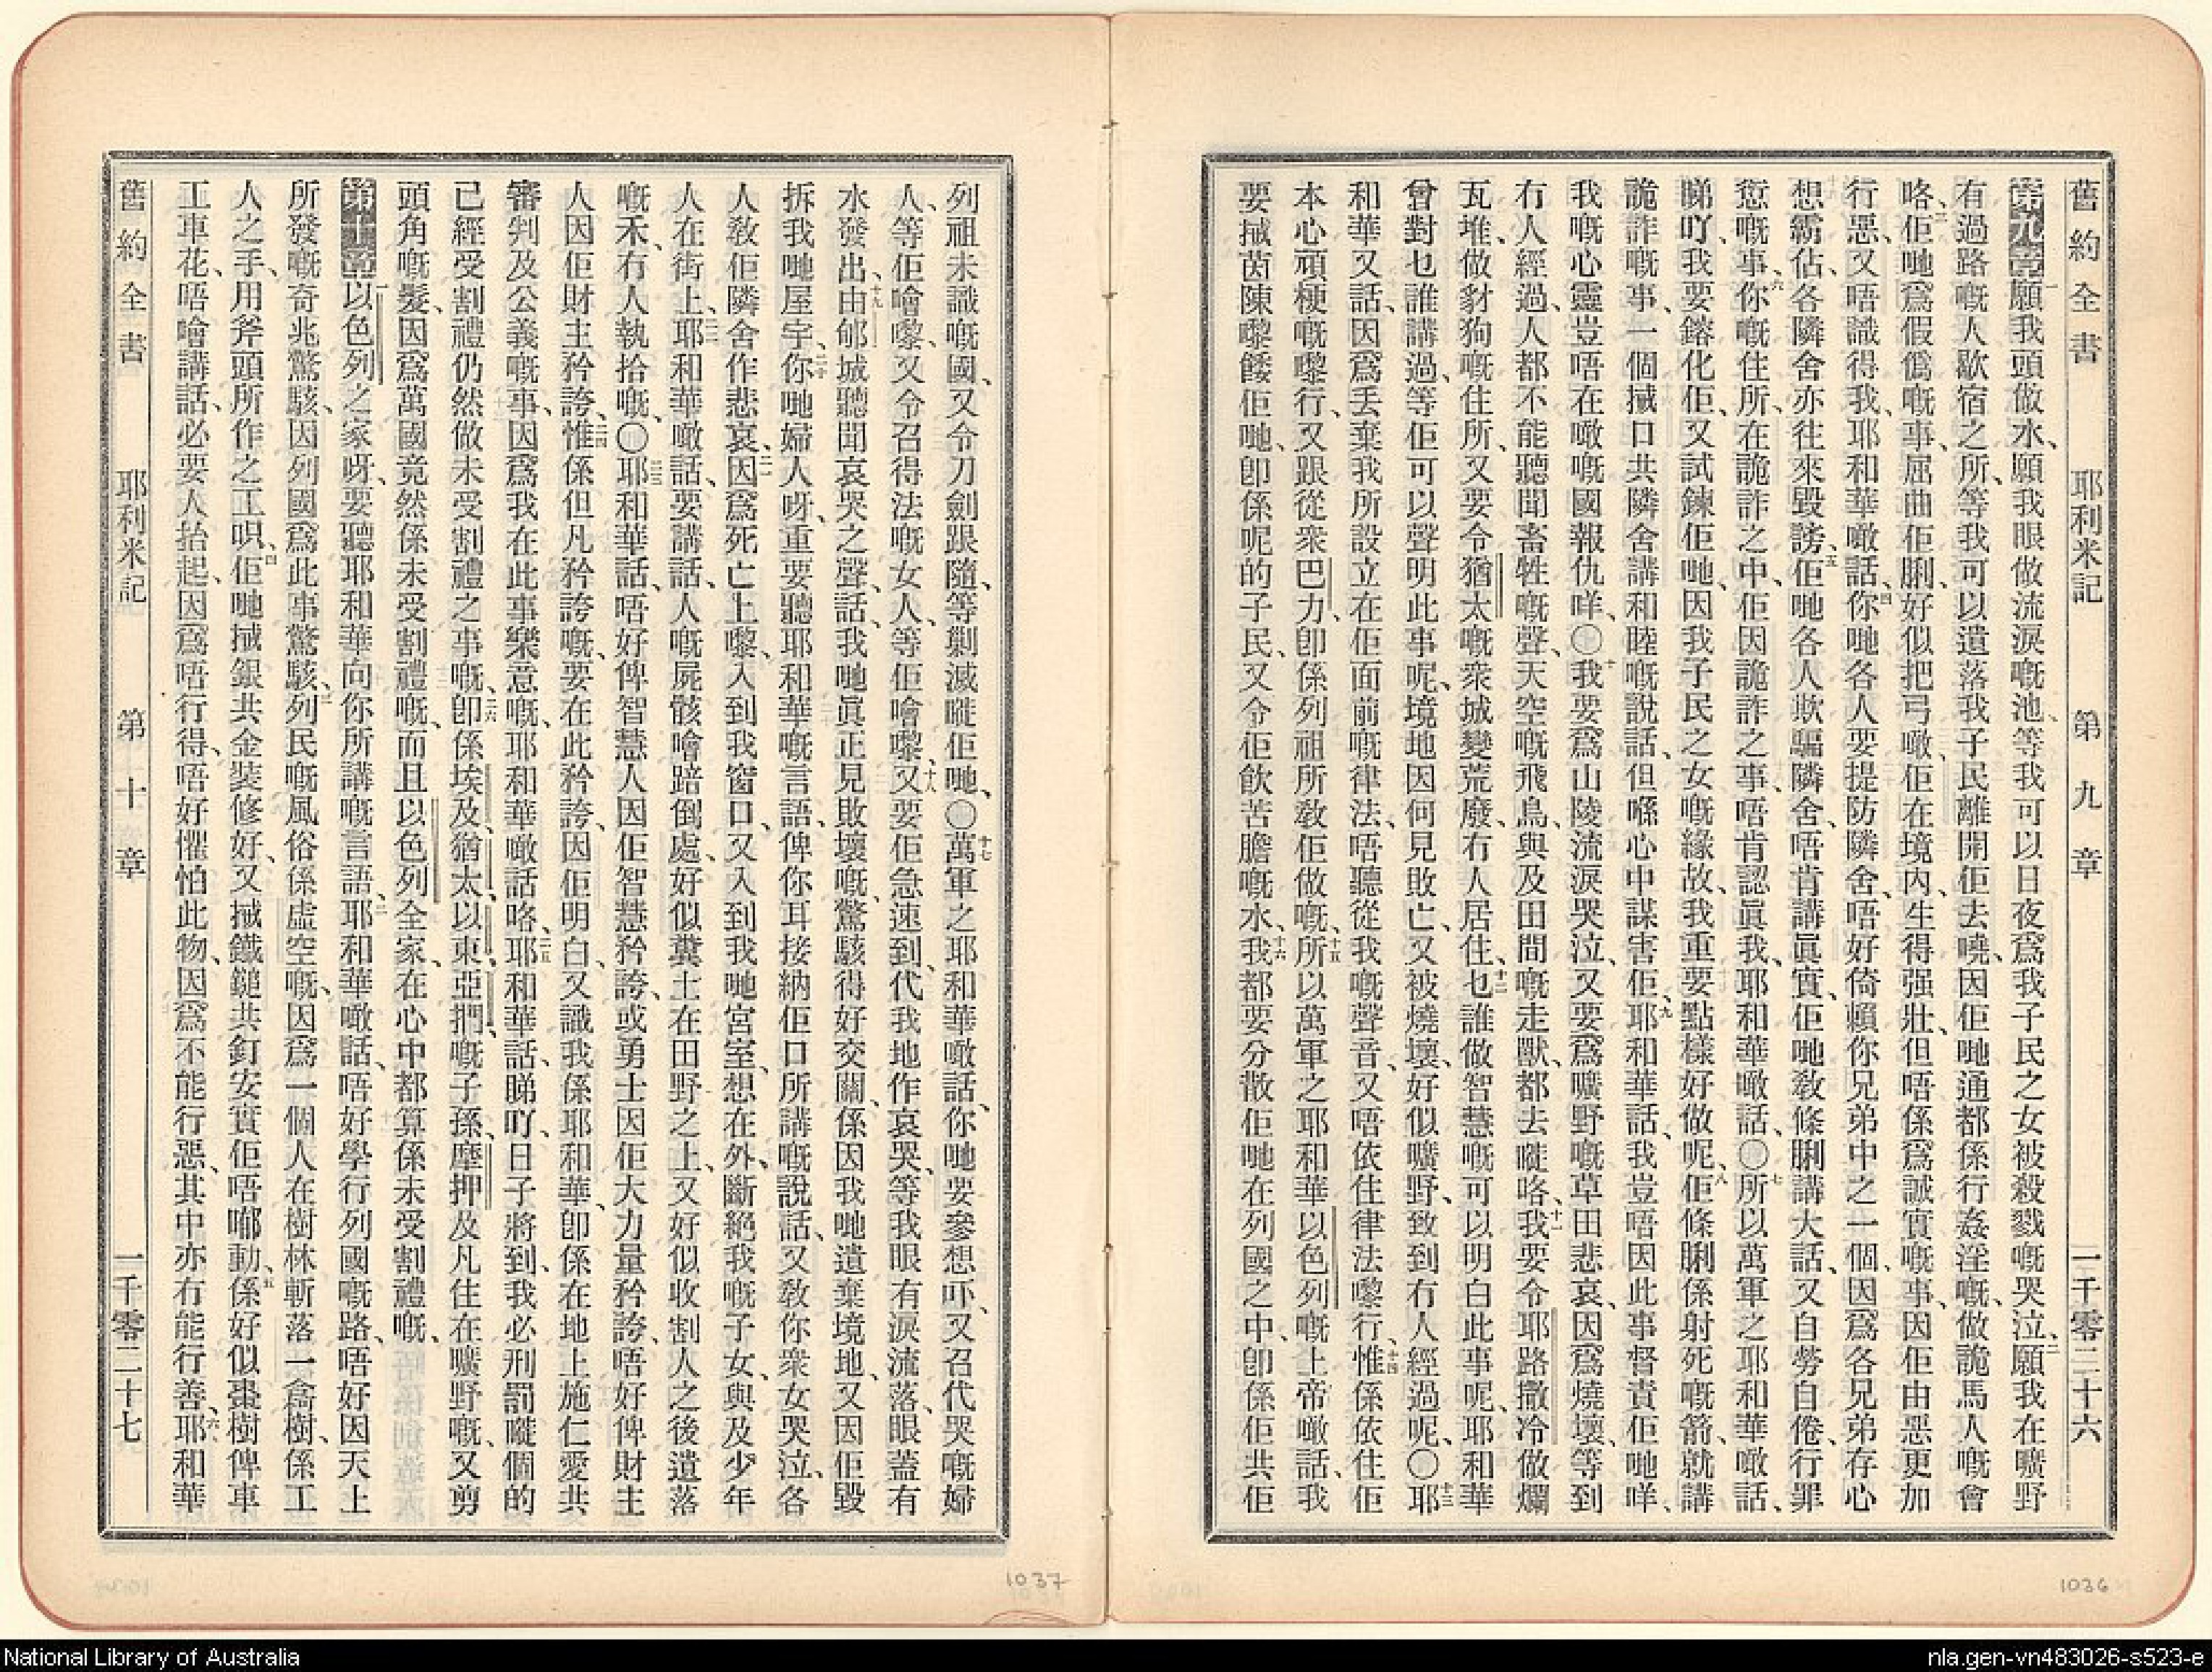 舊約全書 耶利米記 第九章 一千零二十六
第九章一願我頭做水、願我眼做流淚嘅池、等我可以日夜爲我子民之女被殺戮嘅哭泣、二願我在曠野
有過路嘅人歇宿之所、等我可以遺落我子民離開佢去曉、因佢哋通都係行姦淫嘅、做詭馬人嘅會
咯、三佢哋爲假僞嘅事、屈曲佢脷、好似把弓噉、佢在境內、生得强壯、但唔係爲誠實嘅事、因佢由惡更加
行惡、又唔識得我、耶和華噉話、四你哋各人要提防隣舍、唔好倚賴你兄弟中之一個、因爲各兄弟存心
想霸佔、各隣舍亦往來毀謗、五佢哋各人欺騙隣舍、唔肯講眞實、佢哋教條脷講大話、又自勞自倦、行罪
愆嘅事、六你嘅住所、在詭詐之中、佢因詭詐之事、唔肯認眞我、耶和華噉話、〇七所以萬軍之耶和華噉話、
睇吓、我要鎔化佢、又試鍊佢哋、因我子民之女嘅緣故、我重要點樣好做呢、八佢條脷係射死嘅箭、就講
詭詐嘅事、一個搣口共隣舍講和睦嘅說話、但喺心中謀害佢、九耶和華話、我豈唔因此事督責佢哋咩、
我嘅心靈豈唔在噉嘅國報仇咩、〇十我要爲山陵流淚哭泣、又要爲曠野嘅草田悲哀、因爲燒壞、等到
冇人經過、人都不能聽聞畜牲嘅聲、天空嘅飛鳥、與及田間嘅走獸、都去嘥咯、十一我要令耶路撒冷做爛
瓦堆、做豺狗嘅住所、又要令猶太嘅衆城變荒廢、冇人居住、十二乜誰做智慧嘅可以明白此事呢、耶和華
曾對乜誰講過、等佢可以聲明此事呢、境地因何見敗亡、又被燒壞、好似曠野、致到冇人經過呢、〇十三耶
和華又話、因爲丟棄我所設立在佢面前嘅律法、唔聽從我嘅聲音、又唔依住律法嚟行、十四惟係依住佢
本心頑梗嘅嚟行、又跟從衆巴力、卽係列祖所教佢做嘅、十五所以萬軍之耶和華以色列嘅上帝噉話、我
要搣茵陳嚟餧佢哋、卽係呢的子民、又令佢飲苦膽嘅水、十六我都要分散佢哋在列國之中、卽係佢共佢
列祖未識嘅國、又令刀劍跟隨、等剿滅嘥佢哋、〇十七萬軍之耶和華噉話、你哋要參想吓、又召代哭嘅婦
人、等佢噲嚟、又令召得法嘅女人、等佢噲嚟、十八又要佢急速到、代我地作哀哭、等我眼有淚流落、眼蓋有
水發出、十九由郇城聽聞哀哭之聲、話、我哋眞正見敗壞嘅、驚駭得好交關、係因我哋遺棄境地、又因佢毀
拆我哋屋宇、二十你哋婦人呀、重要聽耶和華嘅言語、俾你耳接納佢口所講嘅說話、又教你衆女哭泣、各
人教佢隣舍作悲哀、二一因爲死亡上嚟、入到我窗口、又入到我哋宮室、想在外、斷絕我嘅子女、與及少年
人在街上、二二耶和華噉話、要講話、人嘅屍骸噲踣倒處、好似糞土在田野之上、又好似收割人之後遺落
嘅禾、冇人執拾嘅、〇二三耶和華話、唔好俾智慧人因佢智慧矜誇、或勇士因佢大力量矜誇、唔好俾財主
人因佢財主矜誇、二四惟係但凡矜誇嘅、要在此矜誇、因佢明白、又識我係耶和華、卽係在地上施仁愛共
審判及公義嘅事、因爲我在此事樂意嘅、耶和華噉話咯、二五耶和華話、睇吓、日子將到、我必刑罰嘥個的
已經受割禮仍然做未受割禮之事嘅、二六卽係埃及、猶太、以東、亞捫嘅子孫、摩押及凡住在曠野嘅、又剪
頭角嘅髮、因爲萬國竟然係未受割禮嘅、而且以色列全家、在心中都算係未受割禮嘅、
第十章一以色列之家呀、要聽耶和華向你所講嘅言語、二耶和華噉話、唔好學行列國嘅路、唔好因天上
所發嘅奇兆驚駭、因列國爲此事驚駭、三列民嘅風俗係虛空嘅、因爲一個人在樹林斬落一喬樹、係工
人之手、用斧頭所作之工唄、四佢哋搣銀共金裝修好、又搣鐵鎚共釘安實佢唔嘟動、五係好似棗樹俾車
工車花、唔噲講話、必要人抬起、因爲唔行得、唔好懼怕此物、因爲不能行惡、其中亦冇能行善、六耶和華
舊約全書 耶利米記 第十章 一千零二十七
1037
1036
National Library of Australia
nla.gen-vn483026-s523-e